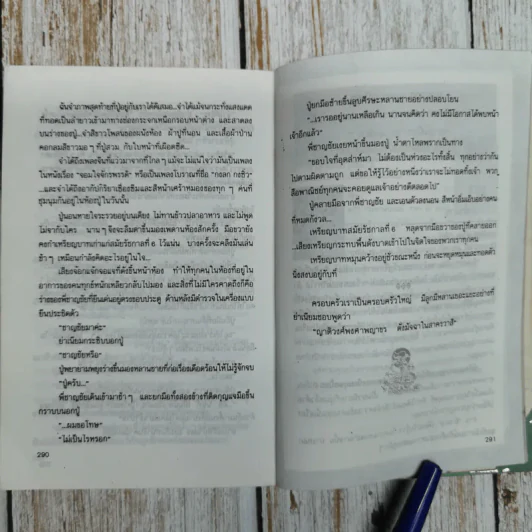 ฉันจำภาพสุดท้ายที่ปู่อยู่กับเราได้ดีเสมอ...จำได้แม้จนกระทั่งแสงแดด
ที่ทอดเป็นลำยาวเข้ามาทางช่องกระจกเหนือกรอบหน้าต่าง และสาดลง
บนร่างของปู่...จำสีขาวโพลนของผนังห้อง ผ้าปูที่นอน และเสื้อผ้าป่าน
คอกลมสีขาวมอ ๆ ที่ปู่สวม กับใบหน้าที่เผือดซีด...
จำได้ถึงเพลงจีนที่แว่วมาจากที่ไกล ๆ แม้จะไม่แน่ใจว่ามันเป็นเพลง
ในหนังเรื่อง "จอมใจจักรพรรดิ" หรือเป็นเพลงโบราณที่ชื่อ
...และจำได้ถึงอากัปกิริยาเซื่องซึมและสีหน้าเศร้าหมองของทุก ๆ คนที่
ชุมนุมกันอยู่ในห้องปู่ ในวันนั้น
ปู่นอนหายใจระรวยอยู่บนเตียง ไม่ทานข้าวปลาอาหาร และไม่พูด
ไม่จากับใคร นาน ๆ จึงจะลืมตาขึ้นมองเพดานห้องสักครั้ง มือขวายัง
คงกำเหรียญบาทเก่าแก่สมัยรัชกาลที่ ๖ ไว้แน่น บางครั้งจะคลึงมันเล่น
ช้า ๆ เหมือนกำลังคิดอะไรอยู่ในใจ...
เสียงจ้อกแจ้กจอแจที่ดังขึ้นหน้าห้อง ทำให้ทุกคนในห้องที่อยู่ใน
อาการของคนทุกข์หนักเหลียวกลับไปมอง และสิ่งที่ไม่มีใครคาดถึงก็คือ
ร่างของพี่ชาญชัยที่ยืนเด่นอยู่ตรงขอบประตู ด้านหลังมีตำรวจในเครื่องแบบ
ยืนประชิดตัว
"ชาญชัยมาค่ะ"
ย่าเนียมกระซิบบอกปู่
"ชาญชัยหรือ"
ปู่พยายามพยุงร่างขึ้นมองหลานชายที่ก่อเรื่องเดือดร้อนให้ไม่รู้จักจบ
"ปู่ครับ..."
พี่ชาญชัยเดินเข้ามาช้า ๆ และยกมือทั้งสองข้างที่ติดกุญแจมือขึ้น
กราบบนอกปู่
"...ผมขอโทษ"
"ไม่เป็นไรหรอก"
290
ปู่ยกมือซ้ายขึ้นลูบศีรษะหลานชายอย่างปลอบโยน
"...เรารออยู่นานเหลือเกิน นานจนคิดว่า คงไม่มีโอกาสได้พบหน้า
เจ้าอีกแล้ว"
พี่ชาญชัยเงยหน้าขึ้นมองปู่ น้ำตาไหลพรากเป็นทาง
"ขอบใจที่อุตส่าห์มา ไม่ต้องเป็นห่วงอะไรทั้งสิ้น ทุกอย่างว่ากัน
ไปตามผิดตามถูก แต่ขอให้รู้ไว้อย่างหนึ่งว่าเราจะไม่ทอดทิ้งเจ้า พวก
สือพาณิชย์ทุกคนจะคอยดูแลเจ้าอย่างดีตลอดไป"
ปู่คลายมือจากพี่ชาญชัย และเอนตัวลงนอน สีหน้าอิ่มเอิบอย่างคน
ที่หมดกังวล...
เหรียญบาทสมัยรัชกาลที่ ๖ หลุดจากมือขวาของปู่ที่คลายออก
...เสียงเหรียญกระทบพื้นดังบาดเข้าไปในจิตใจของพวกเราทุกคน
เหรียญบาทหมุนคว้างอยู่ชั่วขณะหนึ่ง ก่อนจะหยุดหมุนและทอดตัว
นิ่งสงบอยู่กับที่
ครอบครัวเราเป็นครอบครัวใหญ่ มีลูกมีหลานเยอะแยะอย่างที่
ย่าเนียมชอบพูดว่า
"ญาติวงศ์พงศาคณาญาติ ดังมัจฉาในสาครราสี"
291